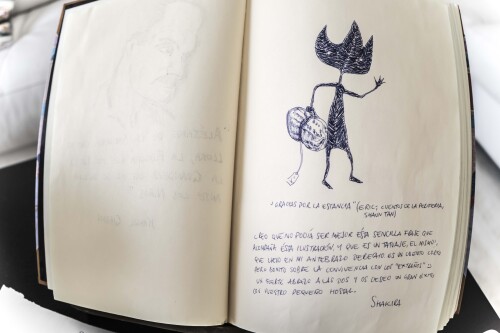 "GRACIAS POR LA ESTANCIA" (ERIC; CUENTOS DE LA PERIFERIA,
SHAUN TAN)
CREO QUE NO PODÍA SER MEJOR ESTA SENCILLA FRASE QUE
ACOMPAÑA ÉSTA ILUSTRACIÓN, Y QUE ES UN TATUAJE, EL MISMO,
QUE LLEVO EN MI ANTEBRAZO DERECHO. ES UN CUENTO CORTO
PERO BONITO SOBRE LA CONVIVENCIA CON LOS "EXTRAÑOS".
UN FUERTE ABRAZO A LAS DOS Y OS DESEO UN GRAN ÉXITO
EN VUESTRO PEQUEÑO HOSTAL.
SHAKIRA